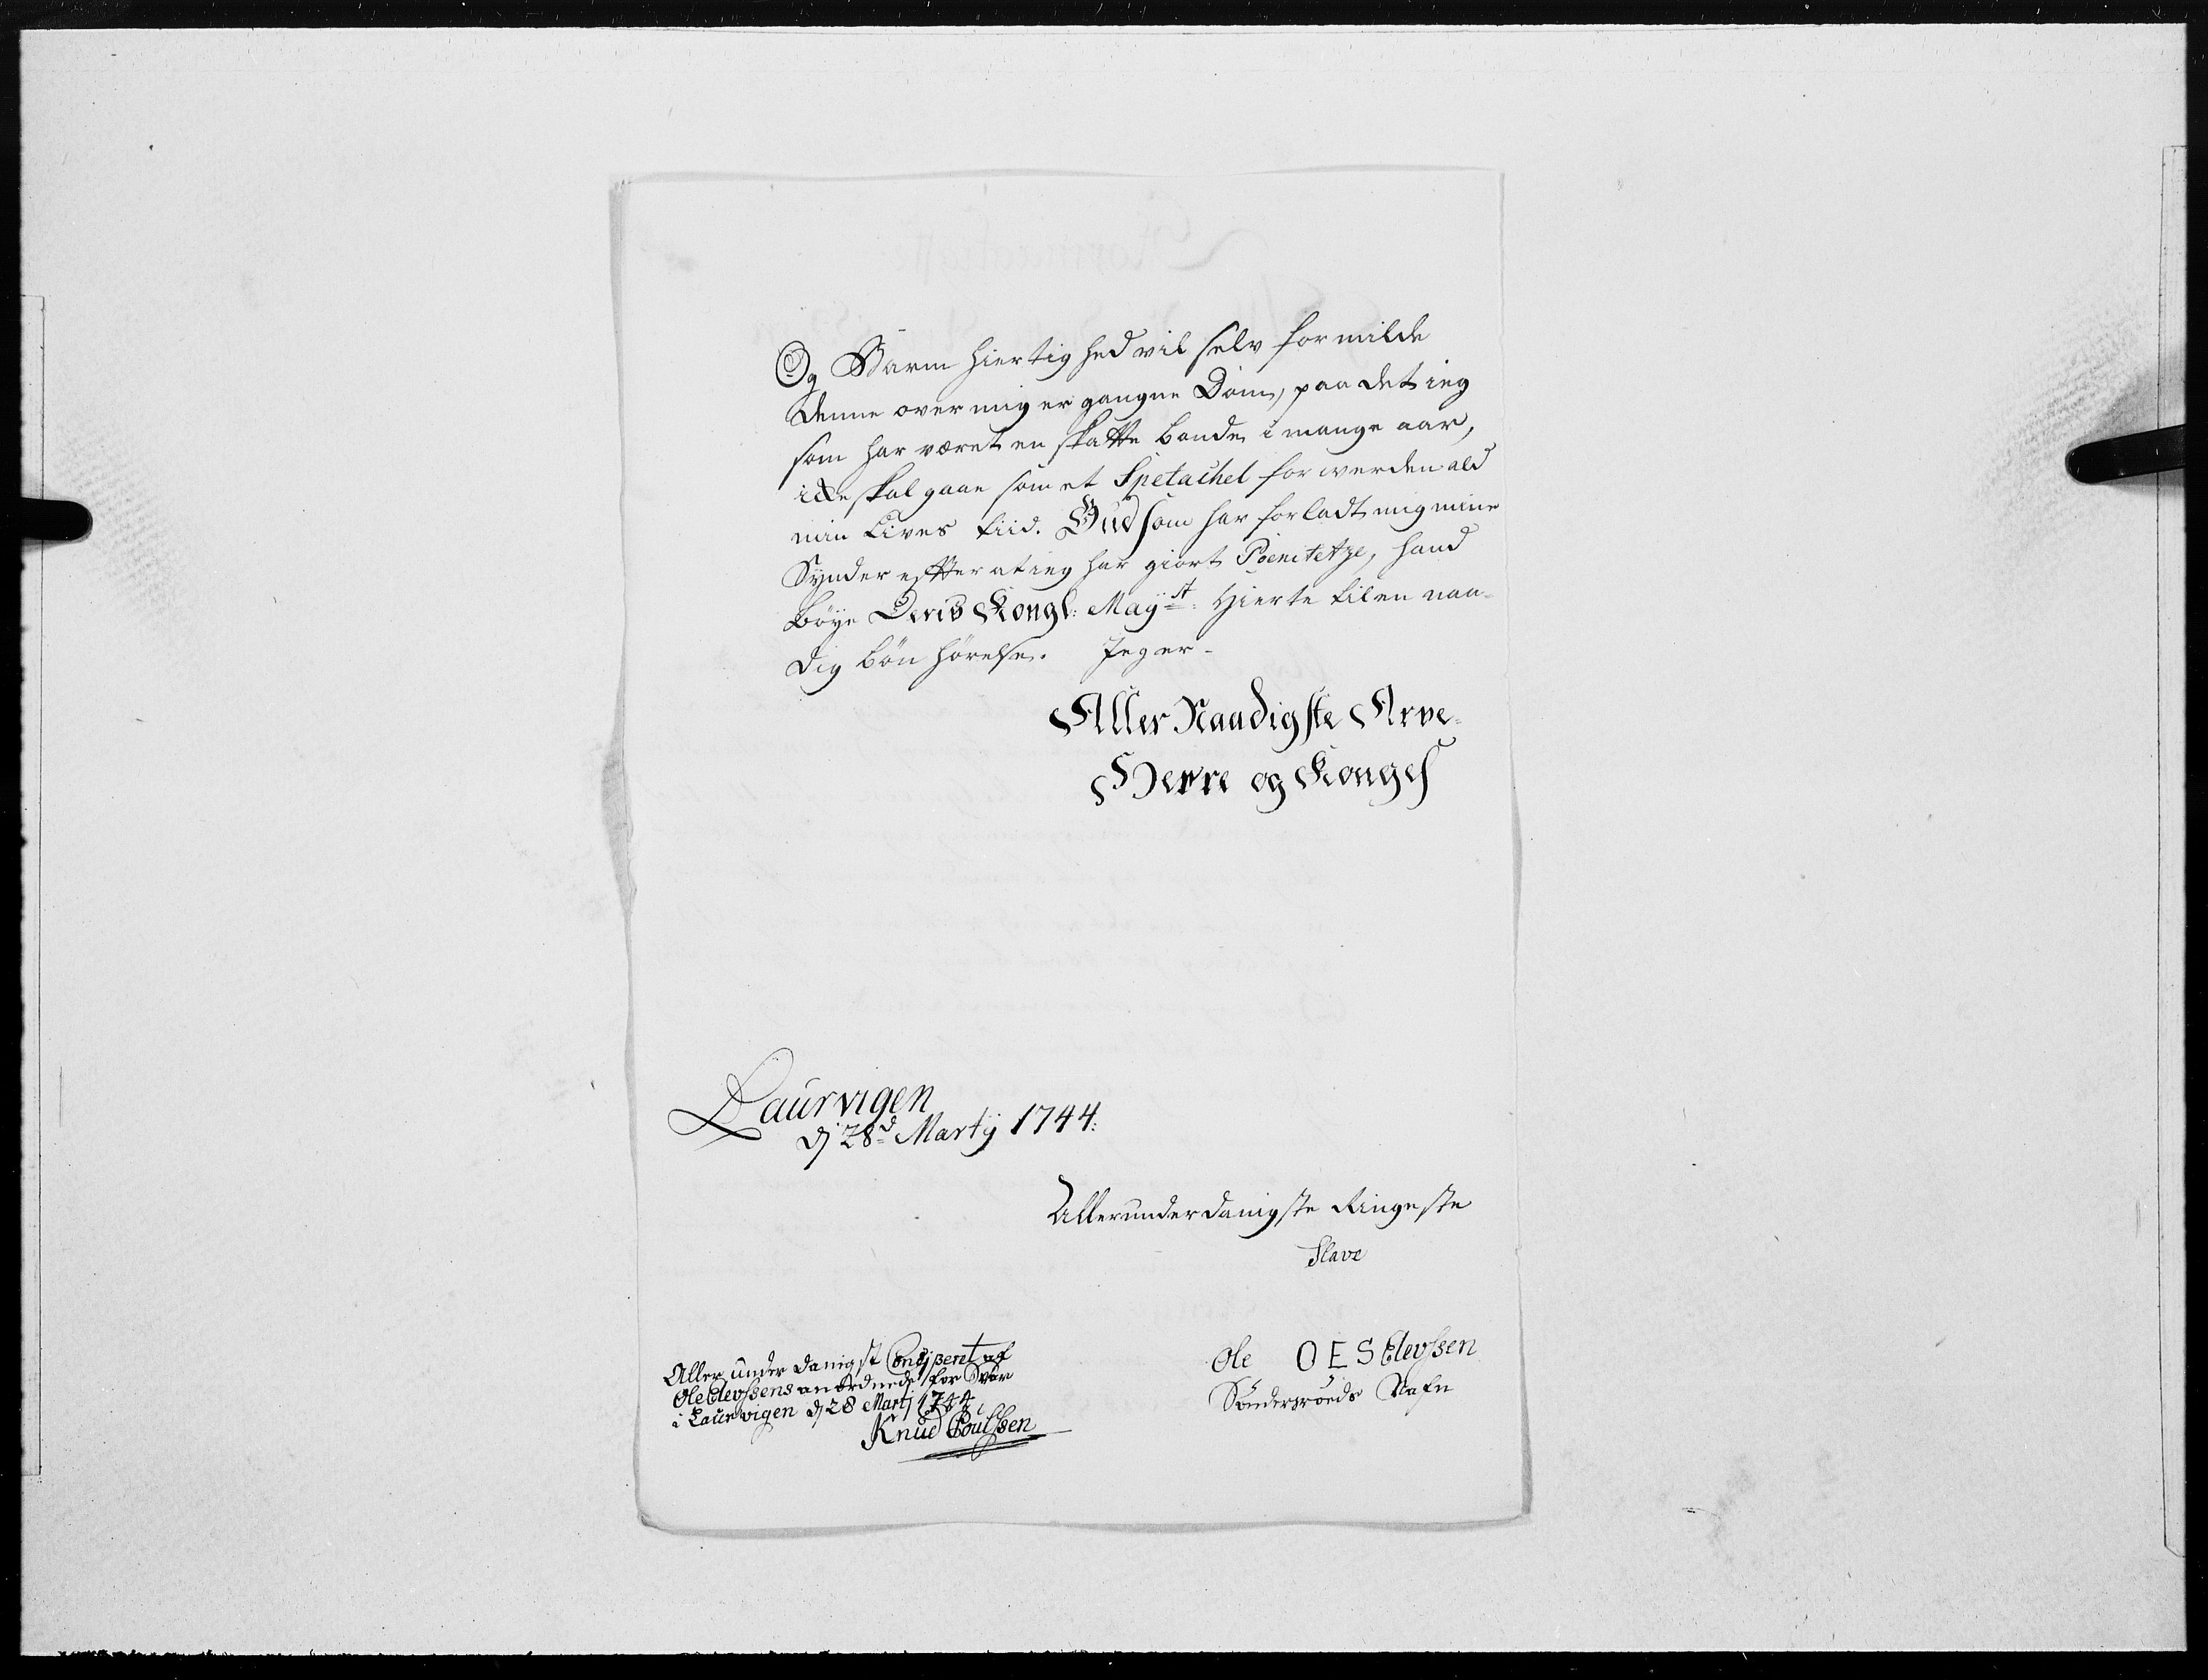 Og Barmhiertighed vil selv formilde
denne over mig ergangne Dom, paa det ieg
som har været en skatte bonde i mange aar,
icke skal gaae som et Spetachel for werden ald
min Lives tiid. Gud som har forladt mig mine
Synder efter at ieg har giort Poenitetze, hand
bøye Deris Kongl: Mayst: Hierte til en naa-
dig bønhørelse. Jeg er-
Aller Naadigste Arve-
Herre og Konges
Laurvigen
dj 28d Martij 1744:
Allerunderdanigste Ringeste
Slave
Ole O E S Elevssen
Sønderrøeds Nafn
Aller under danigst Conciperet af
Ole Elevssens anordnede forSvar
i Laurvigen dj 28 Martj 1744
Knud Poulssen